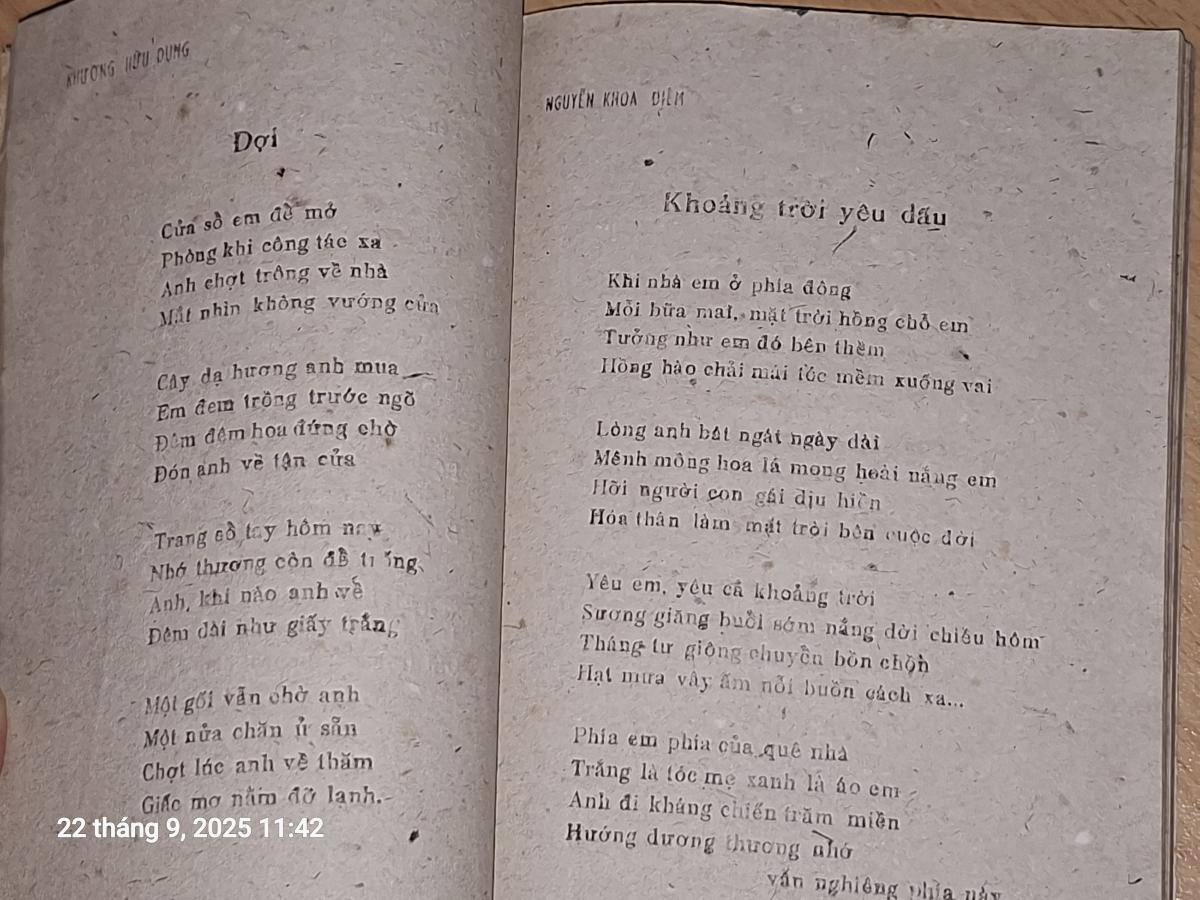 KHƯƠNG HỮU DỤNG
Đợi
Cửa sổ em để mở
Phòng khi công tác xa
Anh chợt trông về nhà
Mắt nhìn không vướng cửa
Cây dạ hương anh mua
Em đem trồng trước ngõ
Đêm đêm hoa đứng chờ
Đón anh về tận cửa
Trang sổ tay hôm nay
Nhớ thương còn để trống
Anh, khi nào anh về
Đêm dài như giấy trắng
Một gối vẫn chờ anh
Một nửa chăn ủ sẵn
Chợt lúc anh về thăm
Giấc mơ nằm đỡ lạnh.
NGUYỄN KHOA ĐIỀM
Khoảng trời yêu dấu
Khi nhà em ở phía đông
Mỗi bữa mai, mặt trời hồng chỗ em
Tưởng như em đó bên thềm
Hồng hào chải mái tóc mềm xuống vai
Lòng anh bát ngát ngày dài
Mênh mông hoa lá mong hoài nắng em
Hỡi người con gái dịu hiền
Hóa thân làm mặt trời bên cuộc đời
Yêu em, yêu cả khoảng trời
Sương giăng buổi sớm nắng dời chiều hôm
Tháng tư giông chuyển bồn chồn
Hạt mưa vây ấm nỗi buồn cách xa...
Phía em phía của quê nhà
Trắng là tóc mẹ xanh là áo em
Anh đi kháng chiến trăm miền
Hướng dương thương nhớ
vẫn nghiêng phía này
22 tháng 9, 2025 11:42